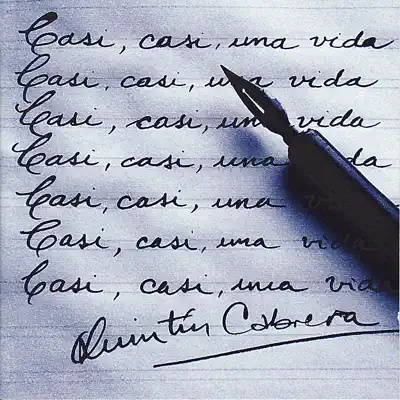 Casi, casi, una vida
Casi, casi, una vida
Casi, casi, una vida
Casi, casi, una vida
Casi, casi, una vida
Casi, casi, una vida
Casi, casi, una vida
Quintín Cabrera